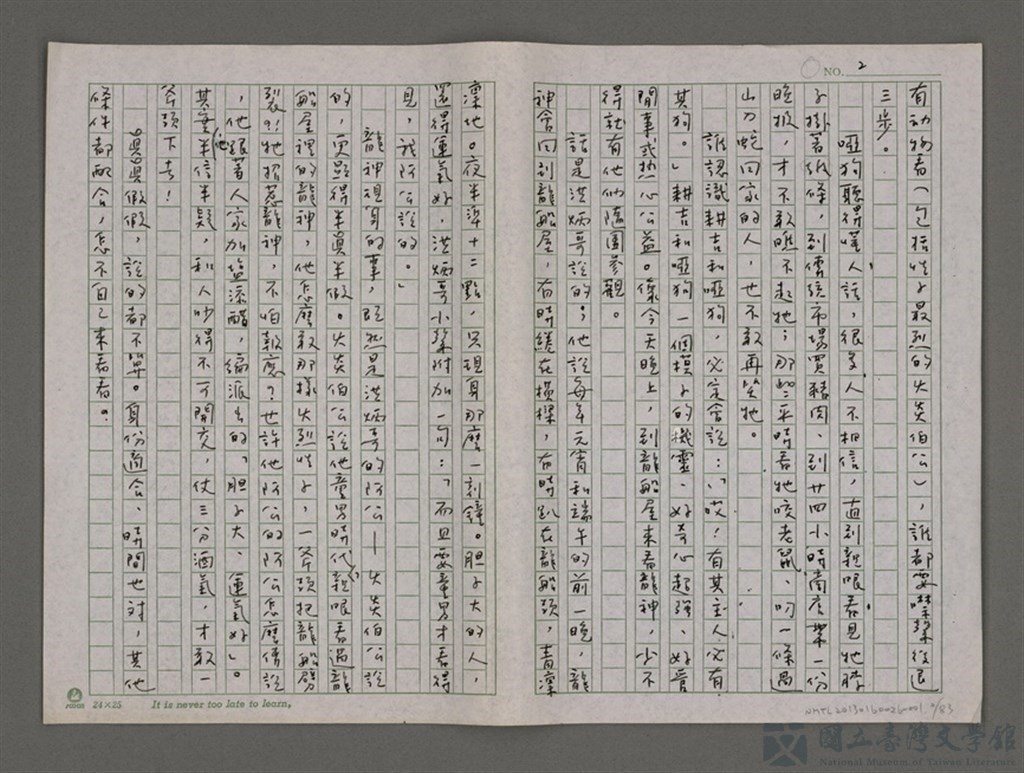 NO. 2
有動物看（包括性子最烈的火炎伯公），誰都要嚇幾後退
三步。
啞狗聽得懂人話，很多人不相信，直到親眼看見牠脖
子掛著紙條，到傳統市場買豬肉、到廿四小時商店帶一份
晚報，才不敢瞧不起牠；那些平時看牠咬老鼠、叼一條過
山刀蛇回家的人，也不敢再笑牠。
誰認識耕吉和啞狗，必定會說：「哎！有其主人必有
其狗。」耕吉和啞狗一個模子的機靈、好奇心超強、好管
閒事或熱心公益。像今天晚上，到龍船屋來看龍神，少不
得就有他倆隨團參觀。
話是洪炳哥說的；他說每年元宵和端午的前一晚，龍
神會回到龍船屋，有時繞在橫樑，有時趴在龍船頭，青凜
凜地。夜半準十二點，只現身那麼一刻鐘。胆子大的人，
還得運氣好，洪炳哥小聲附加一句：「而且要童男才看得
見，我阿公說的。」
龍神現身的事，既然是洪炳哥的阿公—火炎伯公說
的，更顯得半真半假。火炎伯公說他童男時代親眼看過龍
船屋裡的龍神，他怎麼敢那樣火烈性子，一斧頭把龍船劈
裂？！牠招惹龍神，不怕報應？也許他阿公的阿公怎麼傳說
，他跟著人家加鹽添醋，編派出的「胆子大、運氣好」。
其實他半信半疑，和人吵得不可開交，仗三分酒氣，才敢一
斧頭下去！
真真假假，說的都不算。身份適合、時間也對，其他
條件都配合，怎不自己來看看？
24×25 It is never too late to learn.
NMTL20130160026001 2/83
國立臺灣文學館
National Museum of Taiwan Literature